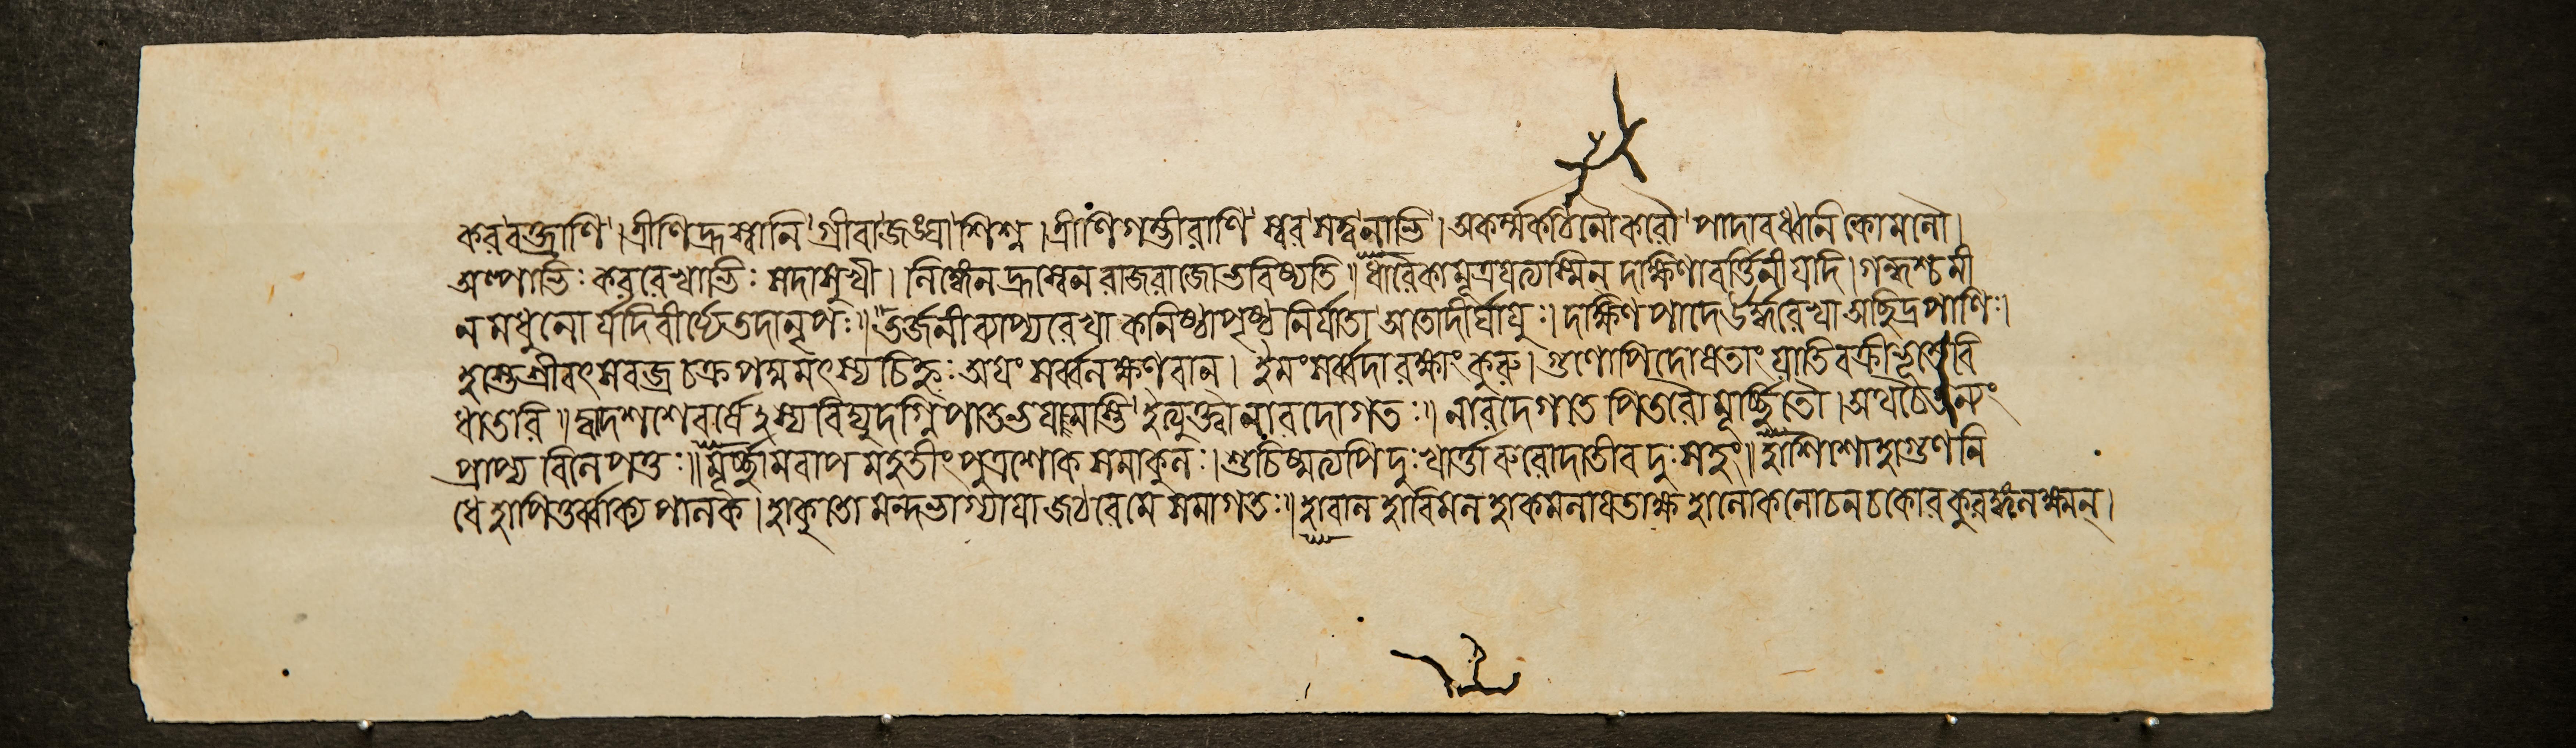 কর বক্ত্রাণি । ত্রীণি হ্রস্বানি গ্রীবা জঙ্ঘা শিশ্ন । ত্রীণি গম্ভীরাণি স্বর সত্ত্ব নাভি । অকর্ম্মকঠিনৌ করৌ পাদাবধ্বনি কোমলৌ ।
অল্পাভিঃ কররেখাভিঃ সদা সুখী । লিঙ্গেন হ্রস্বেন রাজরাজো ভবিষ্যতি ॥ ধারৈকা মূত্রয়ত্যস্মিন্ দক্ষিণাবর্ত্তিনী যদি । গন্ধশ্চ মী
ন মধুনো র্যদি বীর্য্যে তদা নৃপঃ ॥ তর্জনীং ব্যাপ্য রেখা কনিষ্ঠা পৃষ্ঠ নির্যাতা অতো দীর্ঘায়ুঃ । দক্ষিণ পাদে ঊর্দ্ধরেখা অছিদ্রপাণিঃ ।
হস্তে শ্রীবৎস বজ্র চক্র পদ্ম মৎস্য চিহ্নঃ অয়ং সর্ব্বলক্ষণবান । ইমং সর্ব্বদা রক্ষাং কুরু । গুণোপি দোষতাং যাতি বক্রীভূতে বি
ধাতরি ॥ দ্বাদশশে বর্ষেঽস্য বিদ্যুদগ্নি পাত ভয়মস্তি ইত্যুক্ত্বা নারদো গতঃ ॥ নারদে গতে পিতরৌ মূর্চ্ছিতৌ । অথ চৈতন্যং
প্রাপ্য বিললপতুঃ ॥ মূর্চ্ছামবাপ মহতীং পুত্রশোক সমাকুলঃ । শুচিষ্মত্যপি দুঃখার্ত্তা রুরোদাতীব দুঃসহং ॥ হা শিশো হা গুণনি
ধে হা পিতুর্ব্বাক্য পালক । হা কুতো মন্দভাগ্যায়া জঠরে মে সমাগতঃ ॥ হা বাল হা বিমল হা কমলায়তাক্ষ হা লোকলোচন চকোর কুরঙ্গলক্ষ্মন্ ।